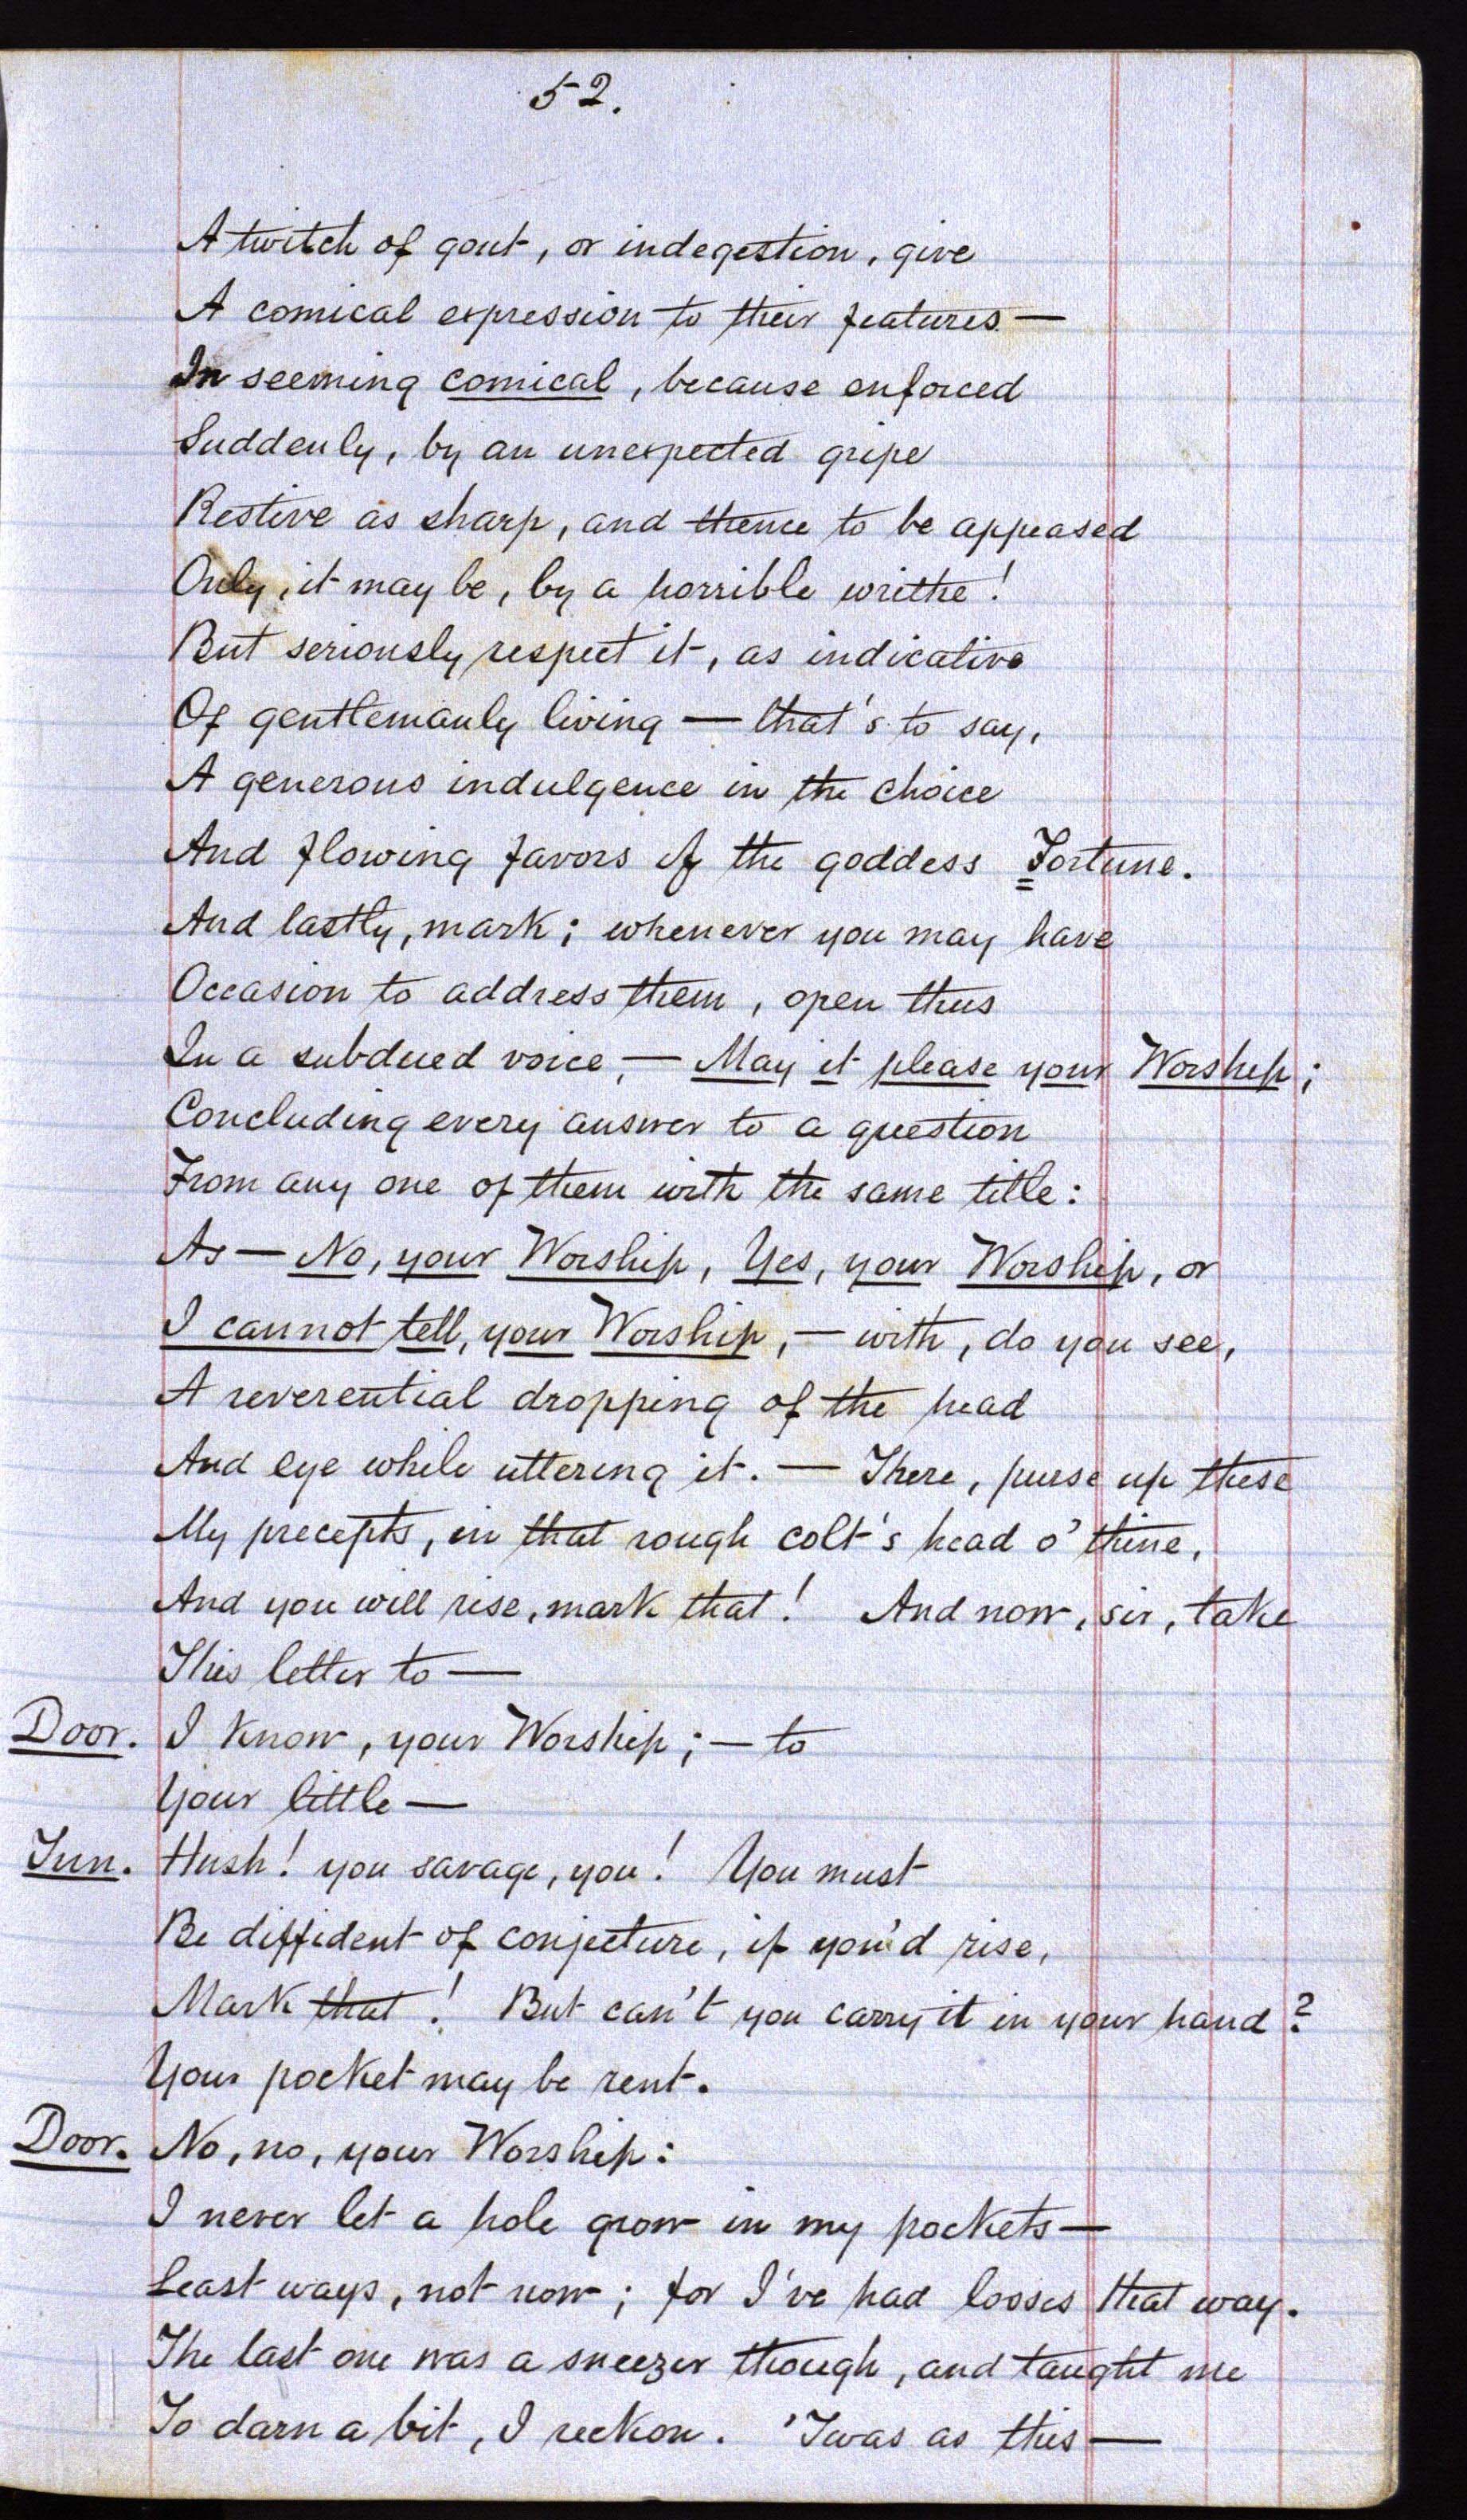 52.
A twitch of gout, or indegestion, give
A comical expression to their features —
In seeming comical, because enforced
Suddenly, by an unexpected gripe
Restive as sharp, and thence to be appeased
Only, it may be, by a horrible writhe!
But seriously respect it, as indicative
Of gentlemanly living — that's to say,
A generous indulgence in the choice
And flowing favors of the goddess Fortune.
And lastly, mark; whenever you may have
Occasion to address them, open thus
In a subdued voice, — May it please your Worship;
Concluding every answer to a question
From any one of them with the same title:
As — No, your Worship, Yes, your Worship, or
I cannot tell, your Worship, — with, do you see,
A reverential dropping of the head
And eye while uttering it. — There, purse up these
My precepts, in that rough colt's head o' thine,
And you will rise, mark that! And now, sir, take
This letter to —
Door. I know, your Worship; — to
Your little —
Jun. Hush! you savage, you! You must
Be diffident of conjecture, if you'd rise,
Mark that! But can't you carry it in your hand?
Your pocket may be rent.
Door. No, no, your Worship:
I never let a hole grow in my pockets —
Least ways, not now; for I've had losses that way.
The last one was a sneezer though, and taught me
To darn a bit, I reckon. 'Twas as this —